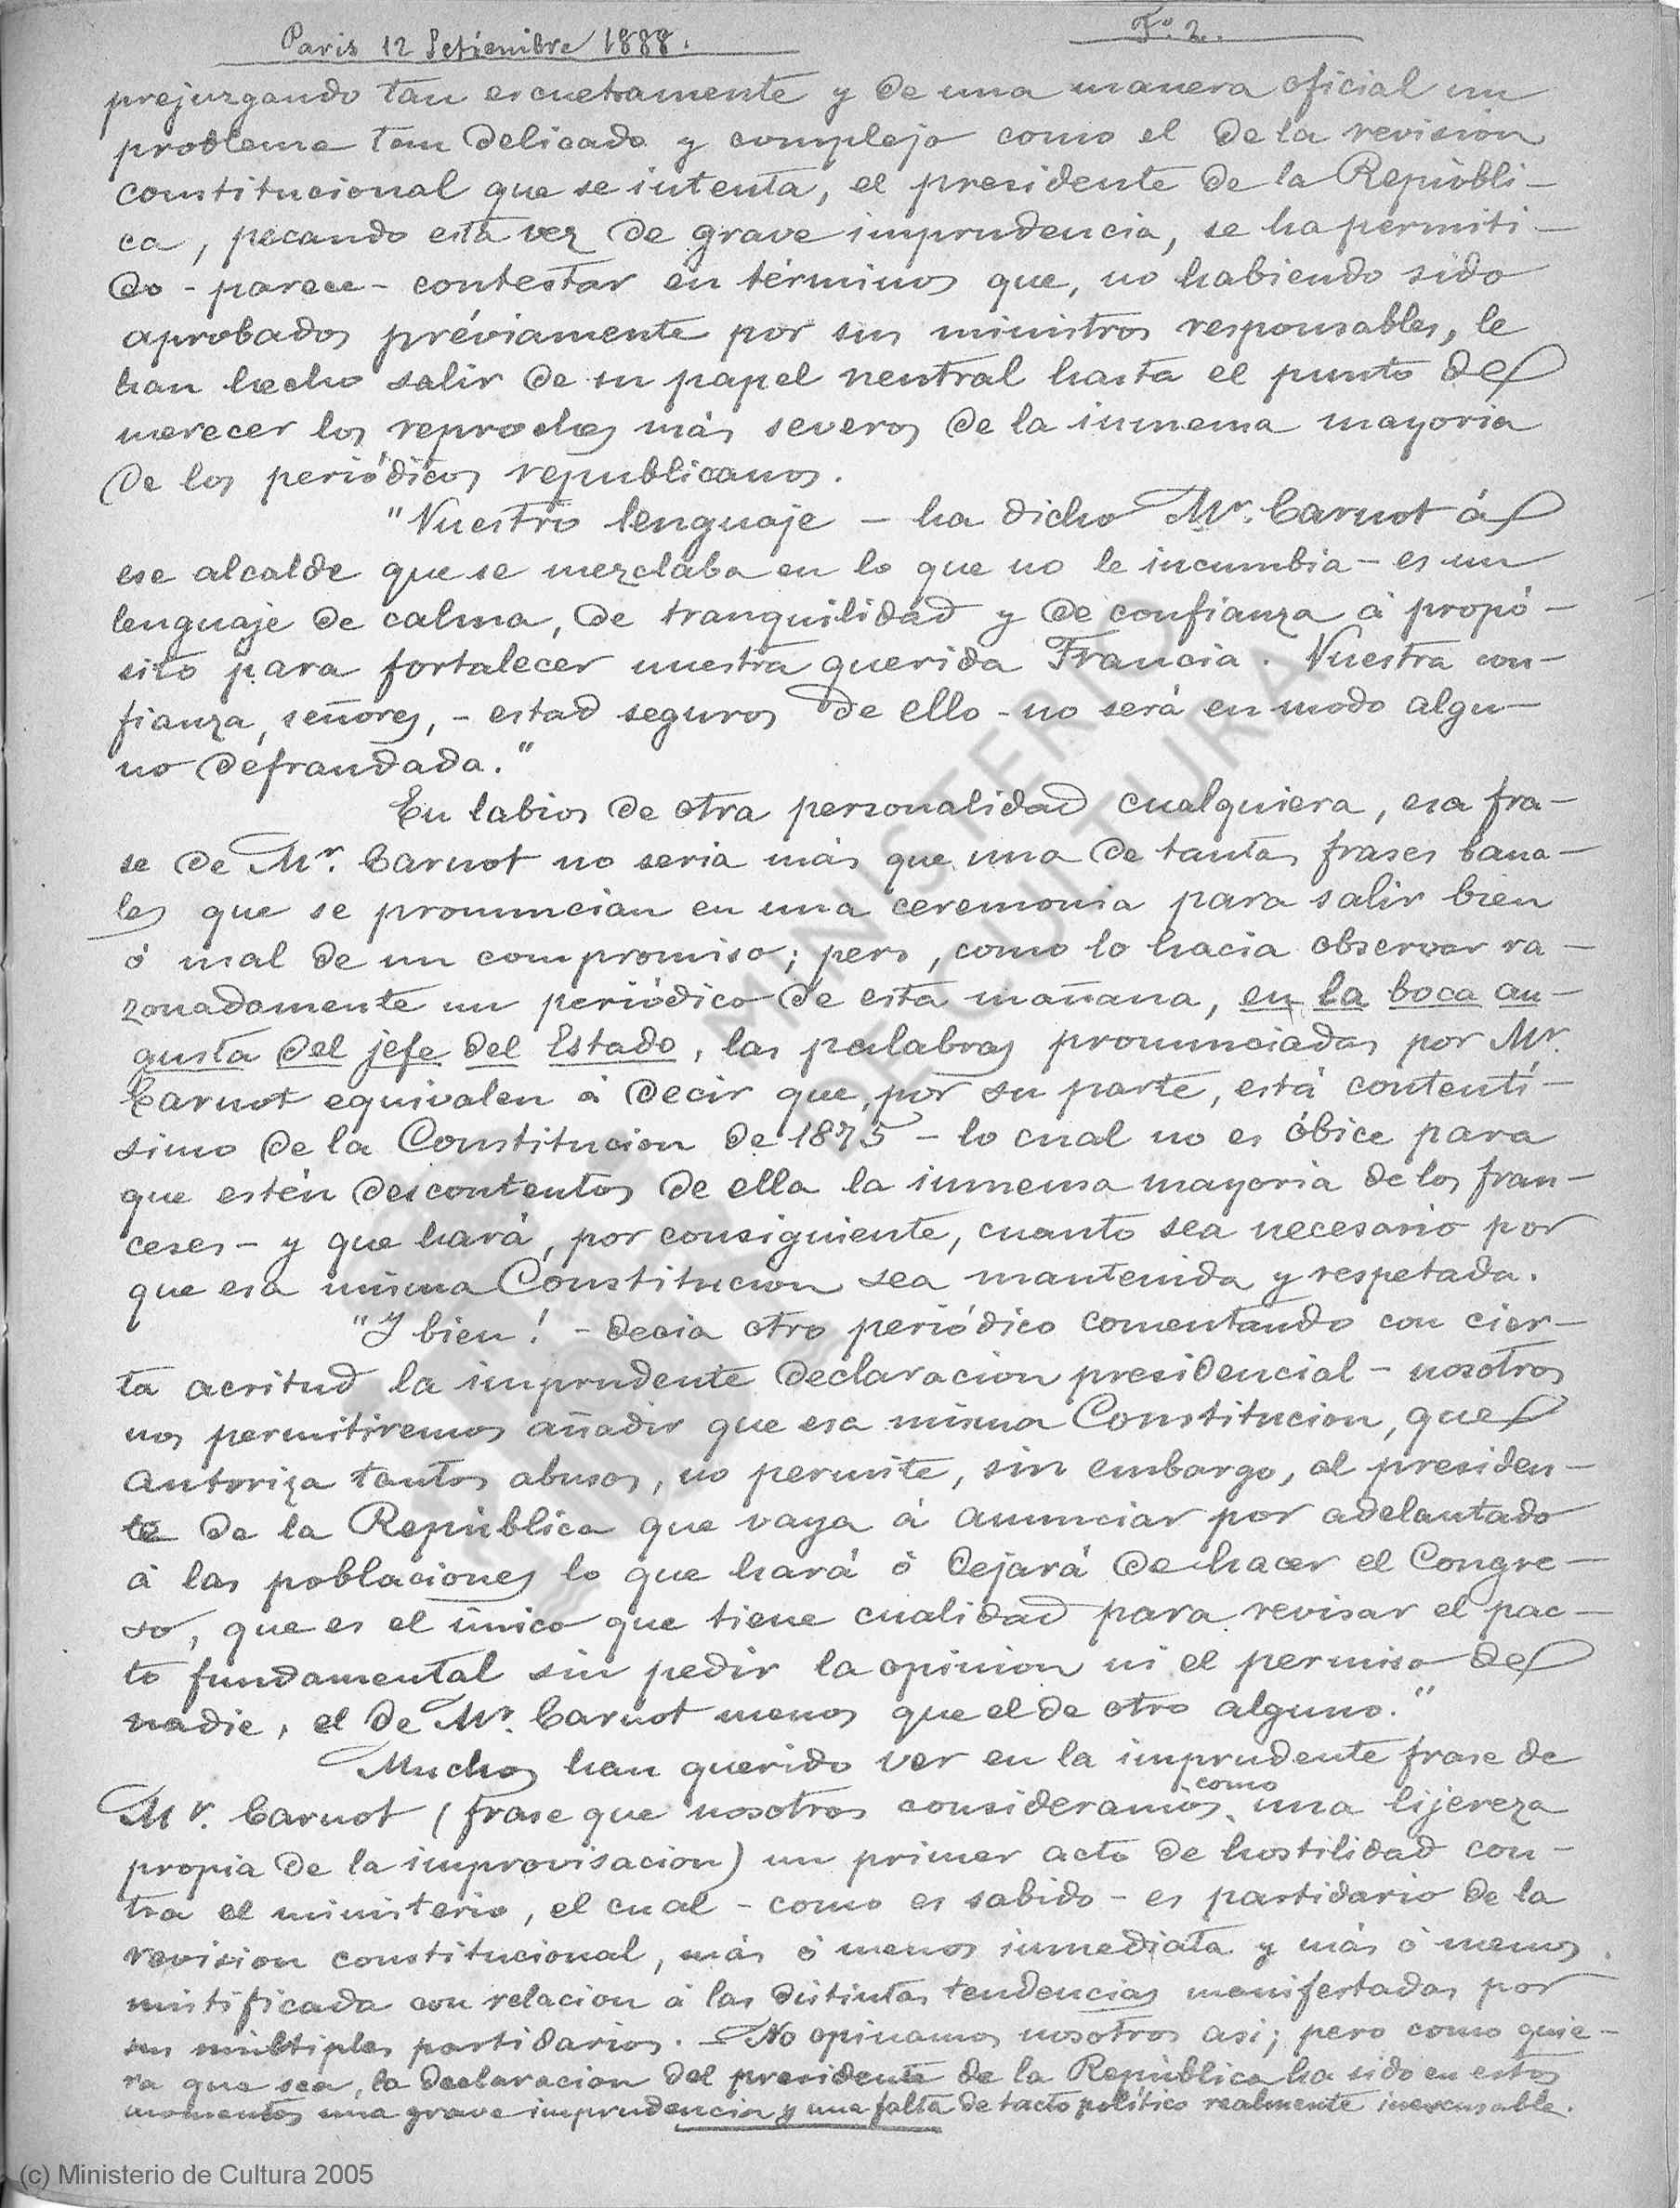 Paris 12 Setiembre 1888.
Fº 2.
prejuzgando tan escuetamente y de una manera oficial un
problema tan delicado y complejo como el de la revision
constitucional que se intenta, el presidente de la Repúbli-
ca, pecando esta vez de grave imprudencia, se ha permiti-
do - parece - contestar en términos que, no habiendo sido
aprobados préviamente por sus ministros responsables, le
han hecho salir de su papel neutral hasta el punto de
merecer los reproches más severos de la inmensa mayoria
de los periódicos republicanos.
"Nuestro lenguaje - ha dicho Mr. Carnot á
ese alcalde que se mezclaba en lo que no le incumbia - es un
lenguaje de calma, de tranquilidad y de confianza á propó-
sito para fortalecer nuestra querida Francia. Vuestra con-
fianza, señores, - estad seguros de ello - no será en modo algu-
no defraudada."
En labios de otra personalidad cualquiera, esa fra-
se de Mr. Carnot no seria más que una de tantas frases bana-
les que se pronuncian en una ceremonia para salir bien
ó mal de un compromiso; pero, como lo hacia observar ra-
zonadamente un periódico de esta mañana, en la boca au-
gusta del jefe del Estado, las palabras pronunciadas por Mr.
Carnot equivalen á decir que, por su parte, está contentí-
simo de la Constitucion de 1875 - lo cual no es óbice para
que estén descontentos de ella la inmensa mayoria de los fran-
ceses - y que hará, por consiguiente, cuanto sea necesario por
que esa misma Constitucion sea mantenida y respetada.
"Y bien! - decia otro periódico comentando con cier-
ta acritud la imprudente declaracion presidencial - nosotros
nos permitiremos añadir que esa misma Constitucion, que
autoriza tantos abusos, no permite, sin embargo, al presiden-
te de la República que vaya á anunciar por adelantado
á las poblaciones lo que hará ó dejará de hacer el Congre-
so, que es el único que tiene cualidad para revisar el pac-
to fundamental sin pedir la opinion ni el permiso de
nadie, el de Mr. Carnot menos que el de otro alguno."
Muchos han querido ver en la imprudente frase de
Mr. Carnot (frase que nosotros consideramos como una lijereza
propia de la improvisacion) un primer acto de hostilidad con-
tra el ministerio, el cual - como es sabido - es partidario de la
revision constitucional, más ó menos inmediata y más ó menos
mistificada con relacion á las distintas tendencias manifestadas por
sus múltiples partidarios. - No opinamos nosotros asi; pero como quie-
ra que sea, la declaracion del presidente de la República ha sido en estos
momentos una grave imprudencia y una falta de tacto político realmente inexcusable.
MINISTERIO
DE CULTURA
(c) Ministerio de Cultura 2005